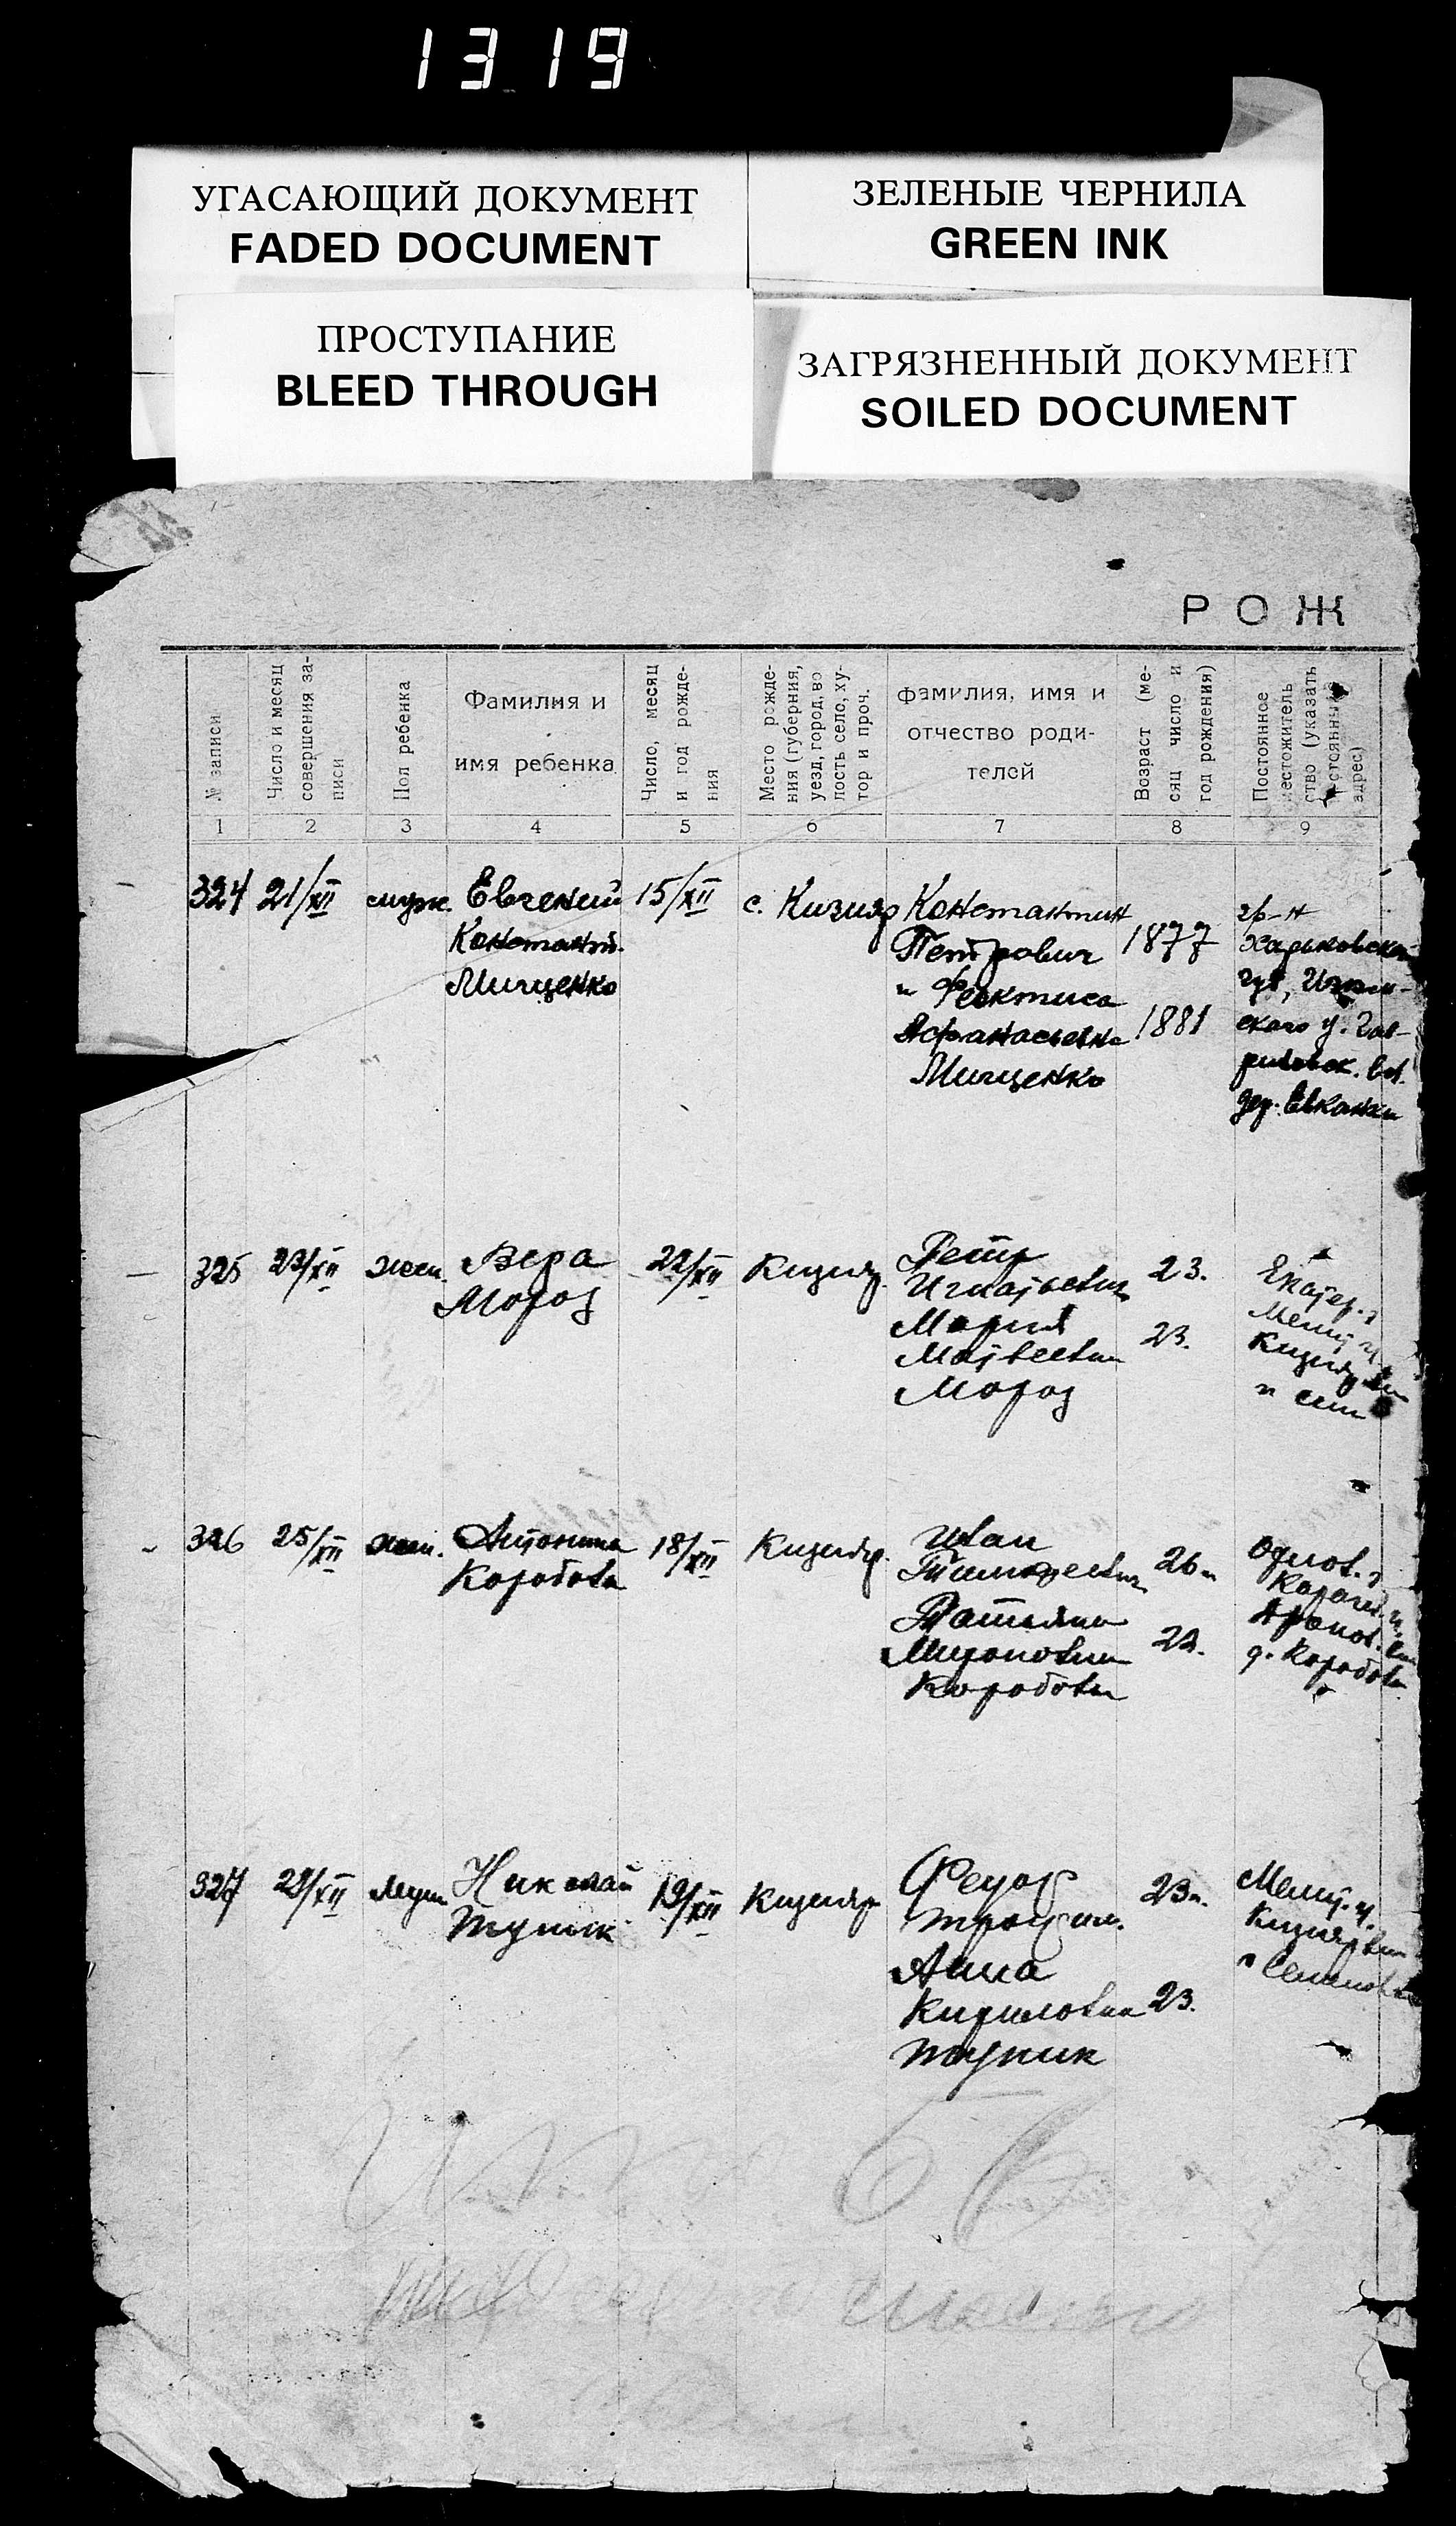 1319
УГАСАЮЩИЙ ДОКУМЕНТ
FADED DOCUMENT
ЗЕЛЕНЫЕ ЧЕРНИЛА
GREEN INK
ПРОСТУПАНИЕ
BLEED THROUGH
ЗАГРЯЗНЕННЫЙ ДОКУМЕНТ
SOILED DOCUMENT
РОЖ
№ записи
Число и месяц
совершения за-
писи
Пол ребенка
Фамилия и
имя ребенка
Число, месяц
и год рожде-
ния
Место рожде-
ния (губерния,
уезд, город, во
лость село, ху-
тор и проч.
Фамилия, имя и
отчество роди-
телей
Возраст (ме-
сяц число и
год рождения)
Постоянное
местожитель
ство (указать
постоянный
адрес)
1 2 3 4 5 6 7 8 9
324
21/XII
муж.
Евгений
Констант.
Мищенко
15/XII
с. Кизияр
Константин
Петрович
и Феоктиса
Афанасьевна
Мищенко
1877
1881
гр-н
Харьковской
губ, Изюм-
ского у. Гав-
риловск. вол.
дер. Евканки
325
23/XII
жен.
Вера
Мороз
22/XII
Кизияр.
Петр
Игнатьевич
Мария
Матвеевна
Мороз
23.
23.
Екатер. г
Мелит. у
Кизияр
326
25/XII
жен.
Антонина
Коробова
18/XII
Кизияр.
Иван
Тимофеевич
Татьяна
Мироновна
Коробовы
26
23.
Карачев. у.
д. Коробова
327
29/XII
муж
Николай
Тупик
19/XII
Кизияр
Федор
Трофим.
Анна
Кириловна
Тупик
23
23.
Мелит. у.
Кизияр